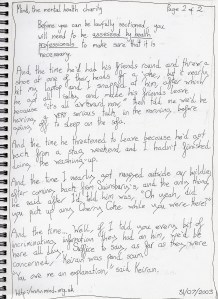 Mind, the mental health charity
Page 2 of 2
Before you can be lawfully sectioned, you
will need to be assessed by health
professionals to make sure that it is
necessary.
And the time he'd had his friends round and threw a
at one of their heads for a joke, and it nearly
hit my laptop and I snapped at him, after which
he got all sulky, and when his friends leave
because "it's all awkward now" then told me we'd be
having a VERY serious talk in the morning, before
going off to sleep on the sofa.
And the time he threatened to leave because he'd got
back from a stag weekend and I hadn't finished
doing the washing-up.
And the time I nearly got mugged outside my building
after coming back from Sainsbury's, and the only thing
he said after I'd told him was, "Oh yeah, did
you pick up any Cherry Coke while you were there?"
And the time... Well, if I told you every bit of
incriminating information they had on him, we'd be
here all day. Suffice to say, as far as they were
concerned, Keiran was penal scum.
"You owe me an explanation," said Keiran.
http://www.mind.org.uk
31/07/2003